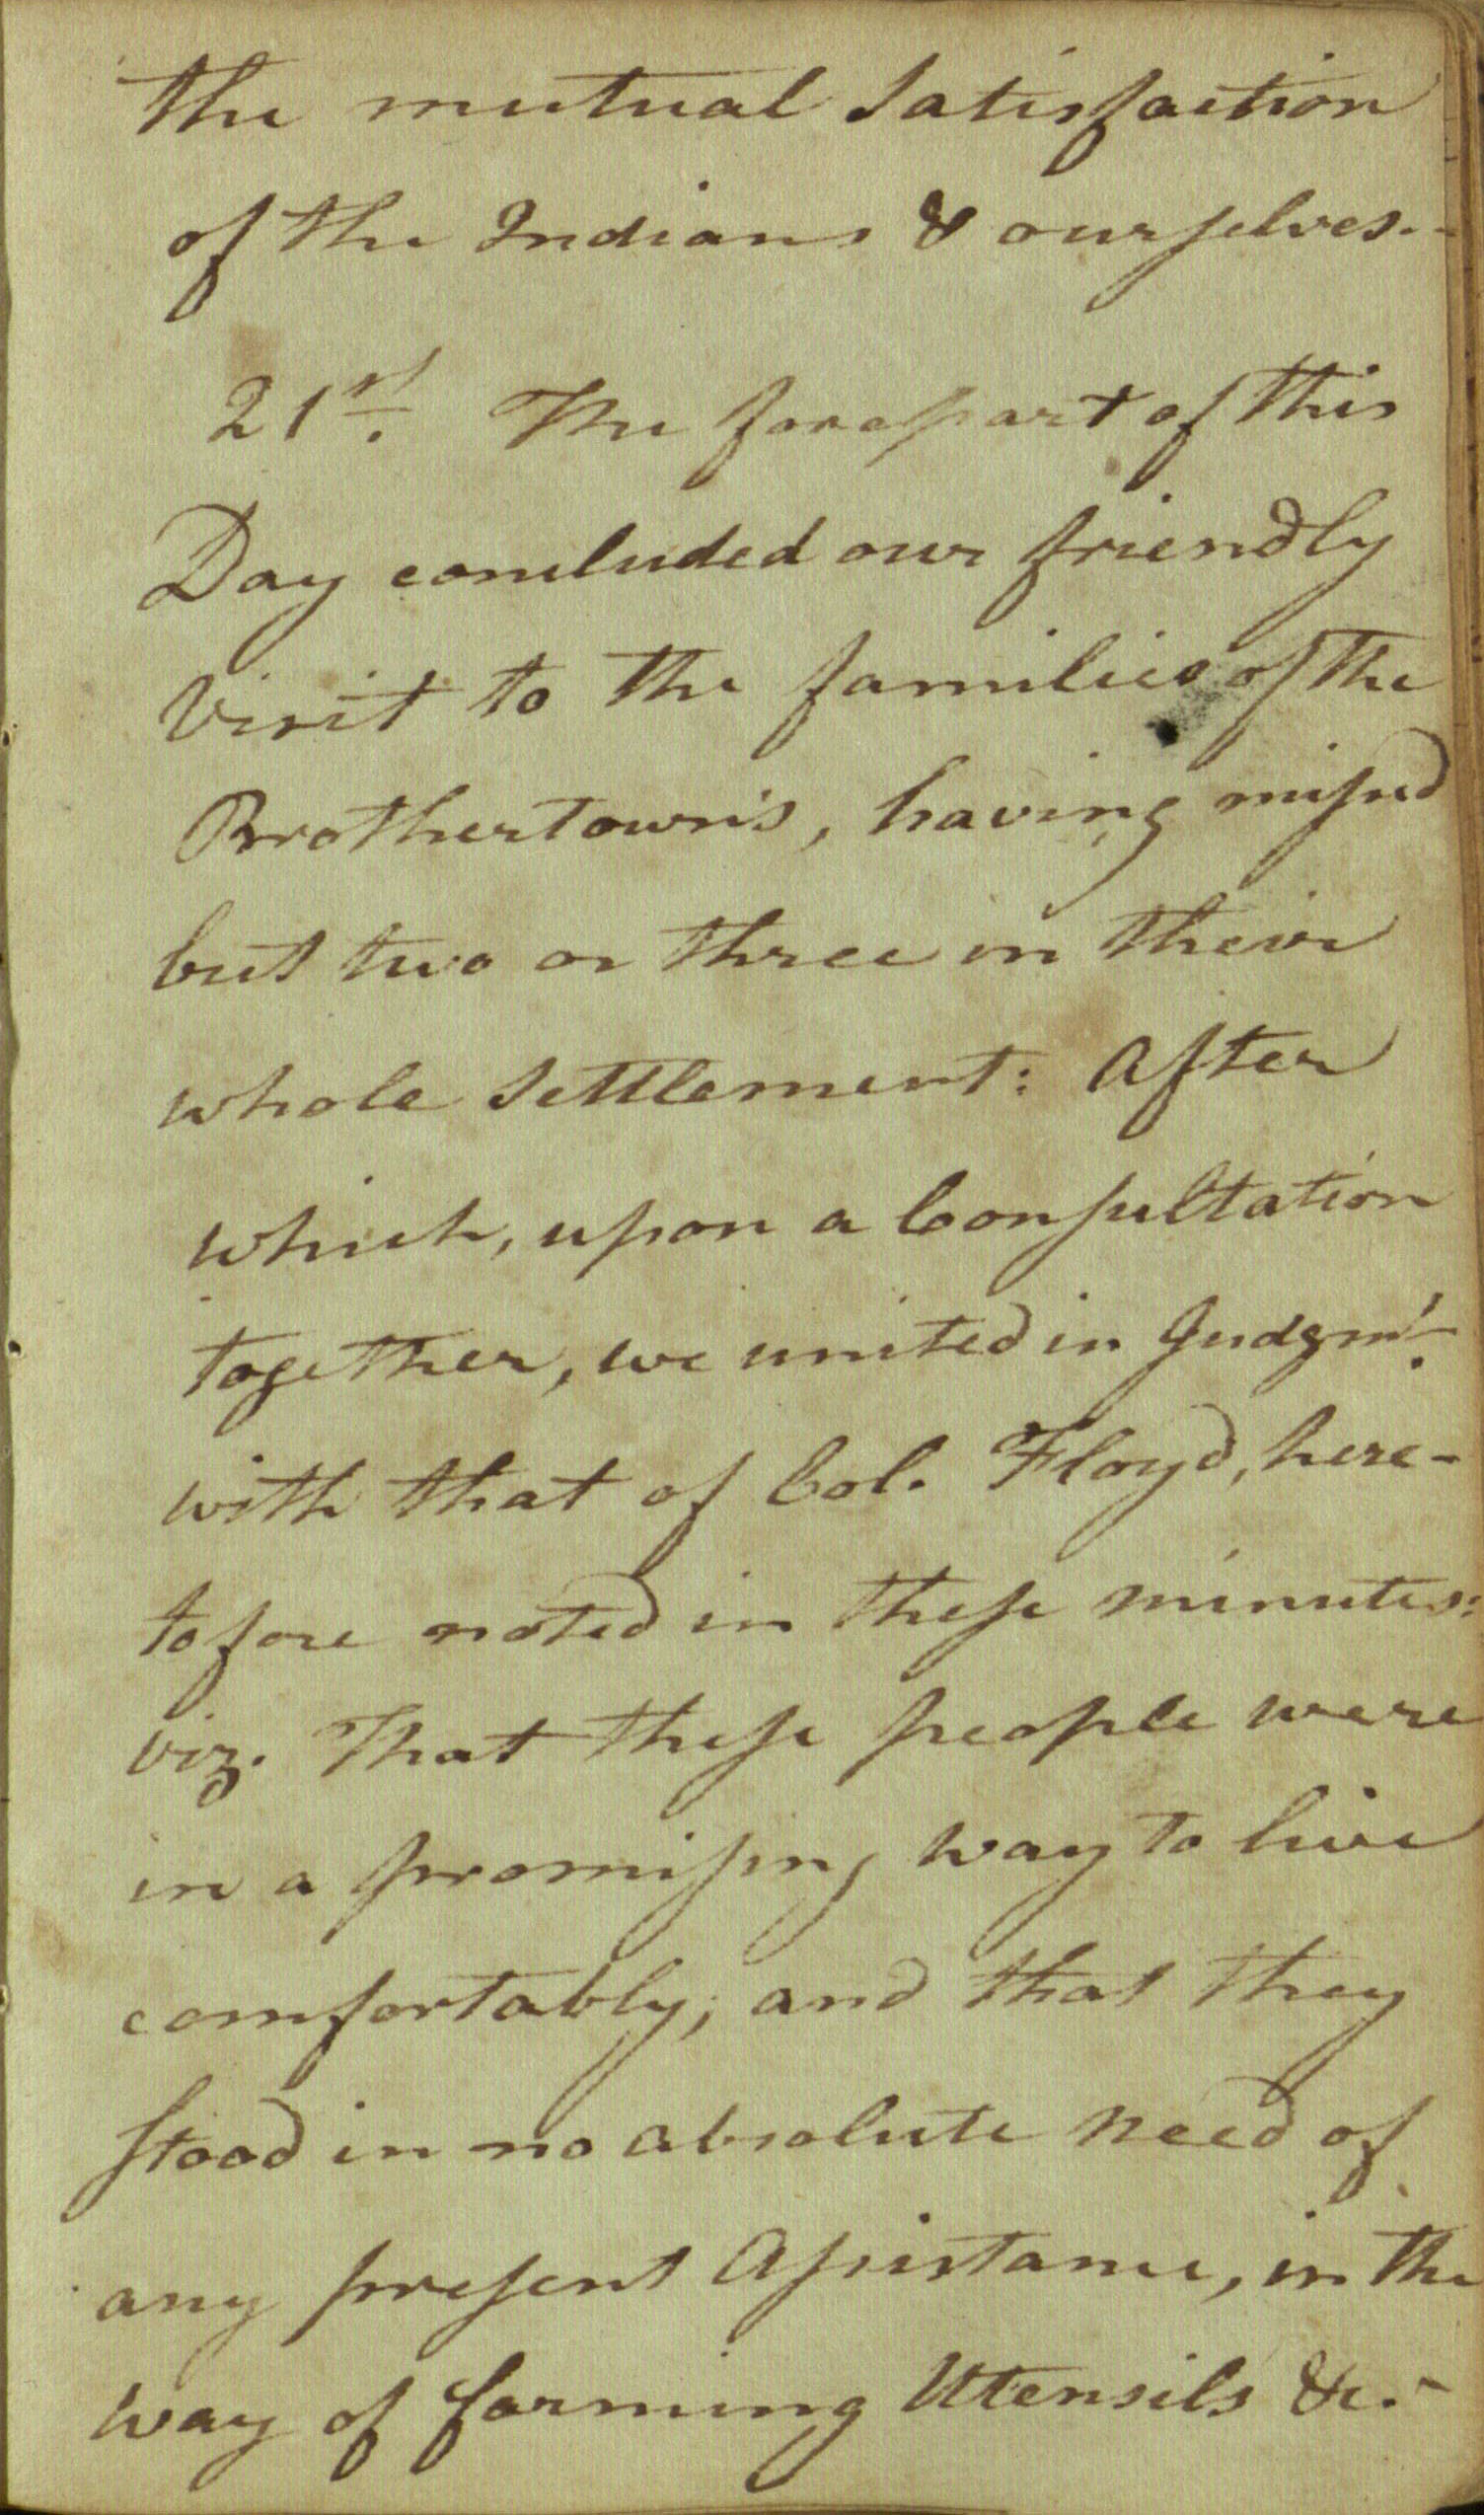 the mutual Satisfaction
of the Indians & ourselves.-
21st. The forepart of this
Day concluded our friendly
Visit to the families of the
Brothertown's, having missed
but two or three in their
whole Settlement: After
which, upon a Consultation
together, we united in Judgmt.
with that of Col. Floyd, here-
tofore noted in these minutes:
viz. That these people were
in a promising way to live
comfortably; and that they
stood in no absolute need of
any present Assistance, in the
way of farming Utensils &c.-